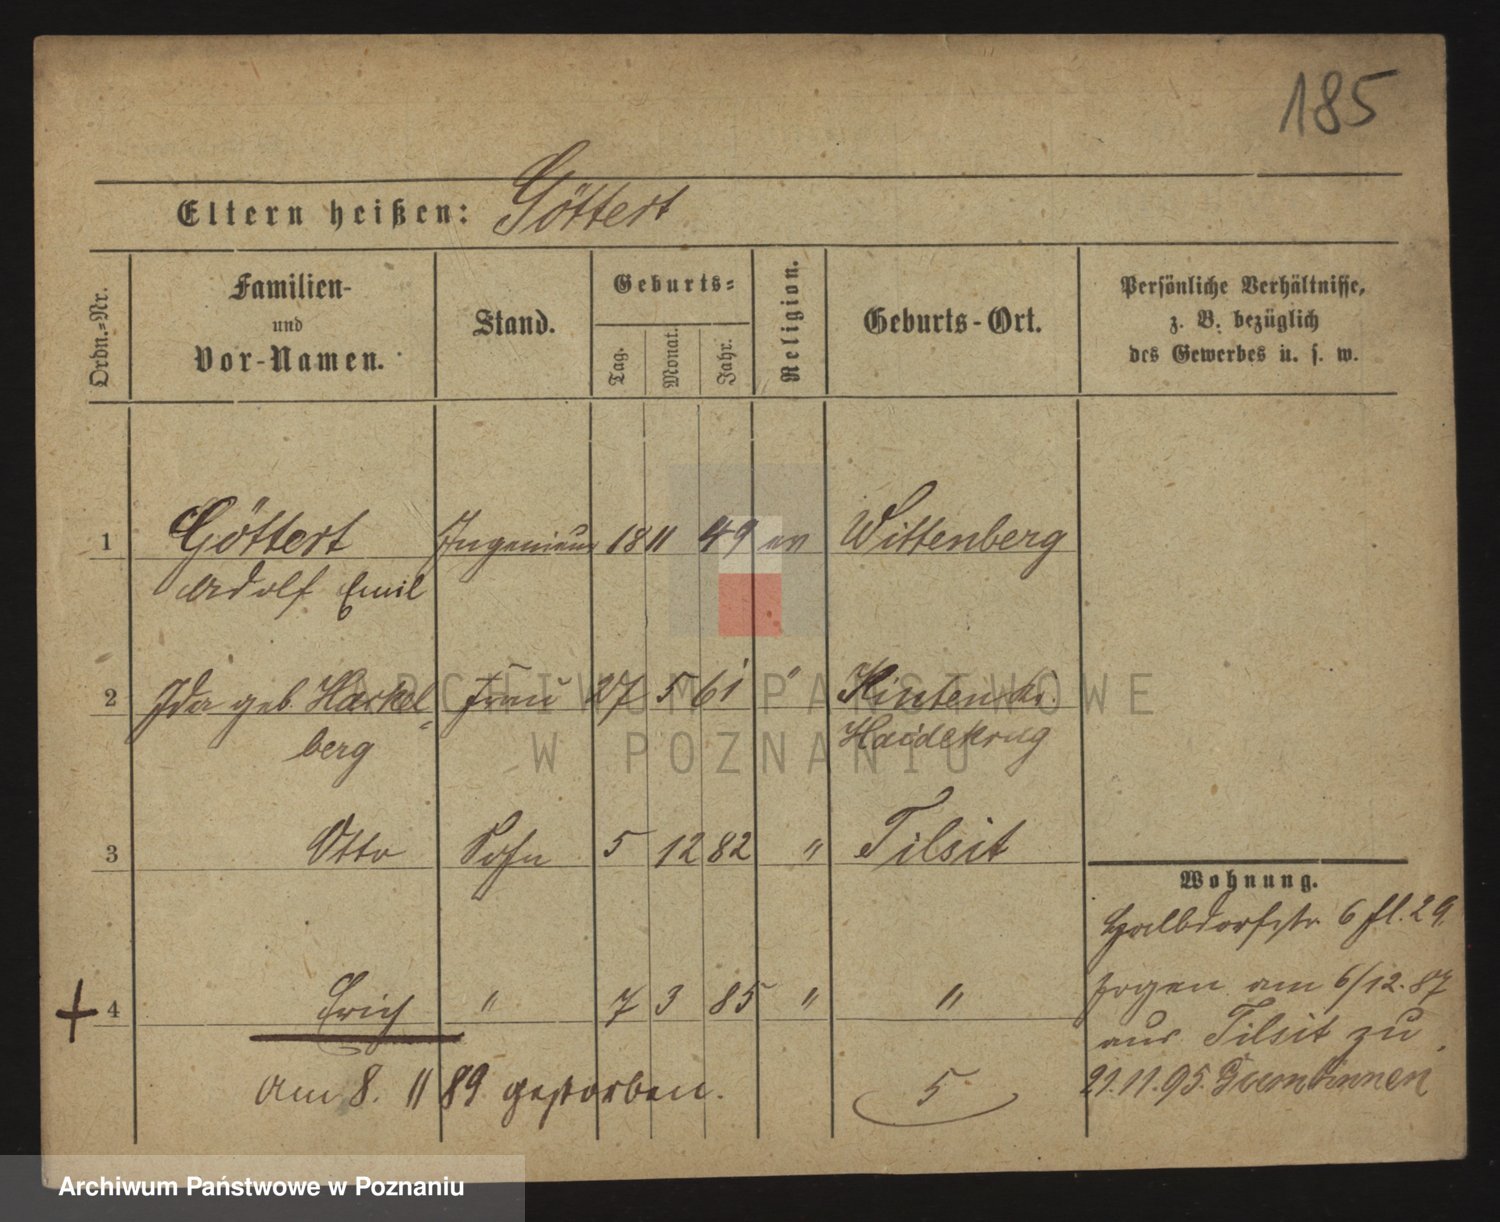 185
Eltern heißen: Göttert
Ordn.-Nr.
Familien-
und
Vor-Namen.
Stand.
Geburts-
Tag.
Monat.
Jahr.
Religion.
Geburts-Ort.
Persönliche Verhältnisse,
z. B. bezüglich
des Gewerbes u. s. w.
1 Göttert Ingenieur 18 11 49 ev Wittenberg
Adolf Emil
2 Ida geb. Frau 27 5 61 " Kinten
berg Haidekrug
3 Otto Sohn 5 12 82 " Tilsit
Wohnung.
Halbdorfstr 6 fl. 29.
4 Erich " 7 3 85 " "
zogen am 6/12.87
aus Tilsit zu.
am 8. 11 89 gestorben.
5
21.11.95. Gumbinnen
ARCHIWUM PAŃSTWOWE
W POZNANIU
Archiwum Państwowe w Poznaniu